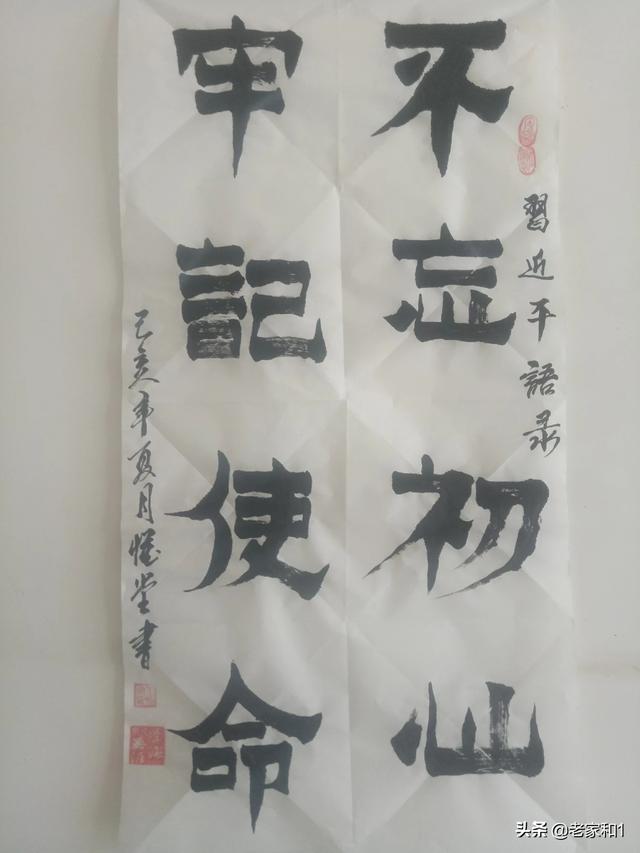 習近平語录
不忘初心
牢記使命
己亥年夏月惺堂書
头条 @老家和1